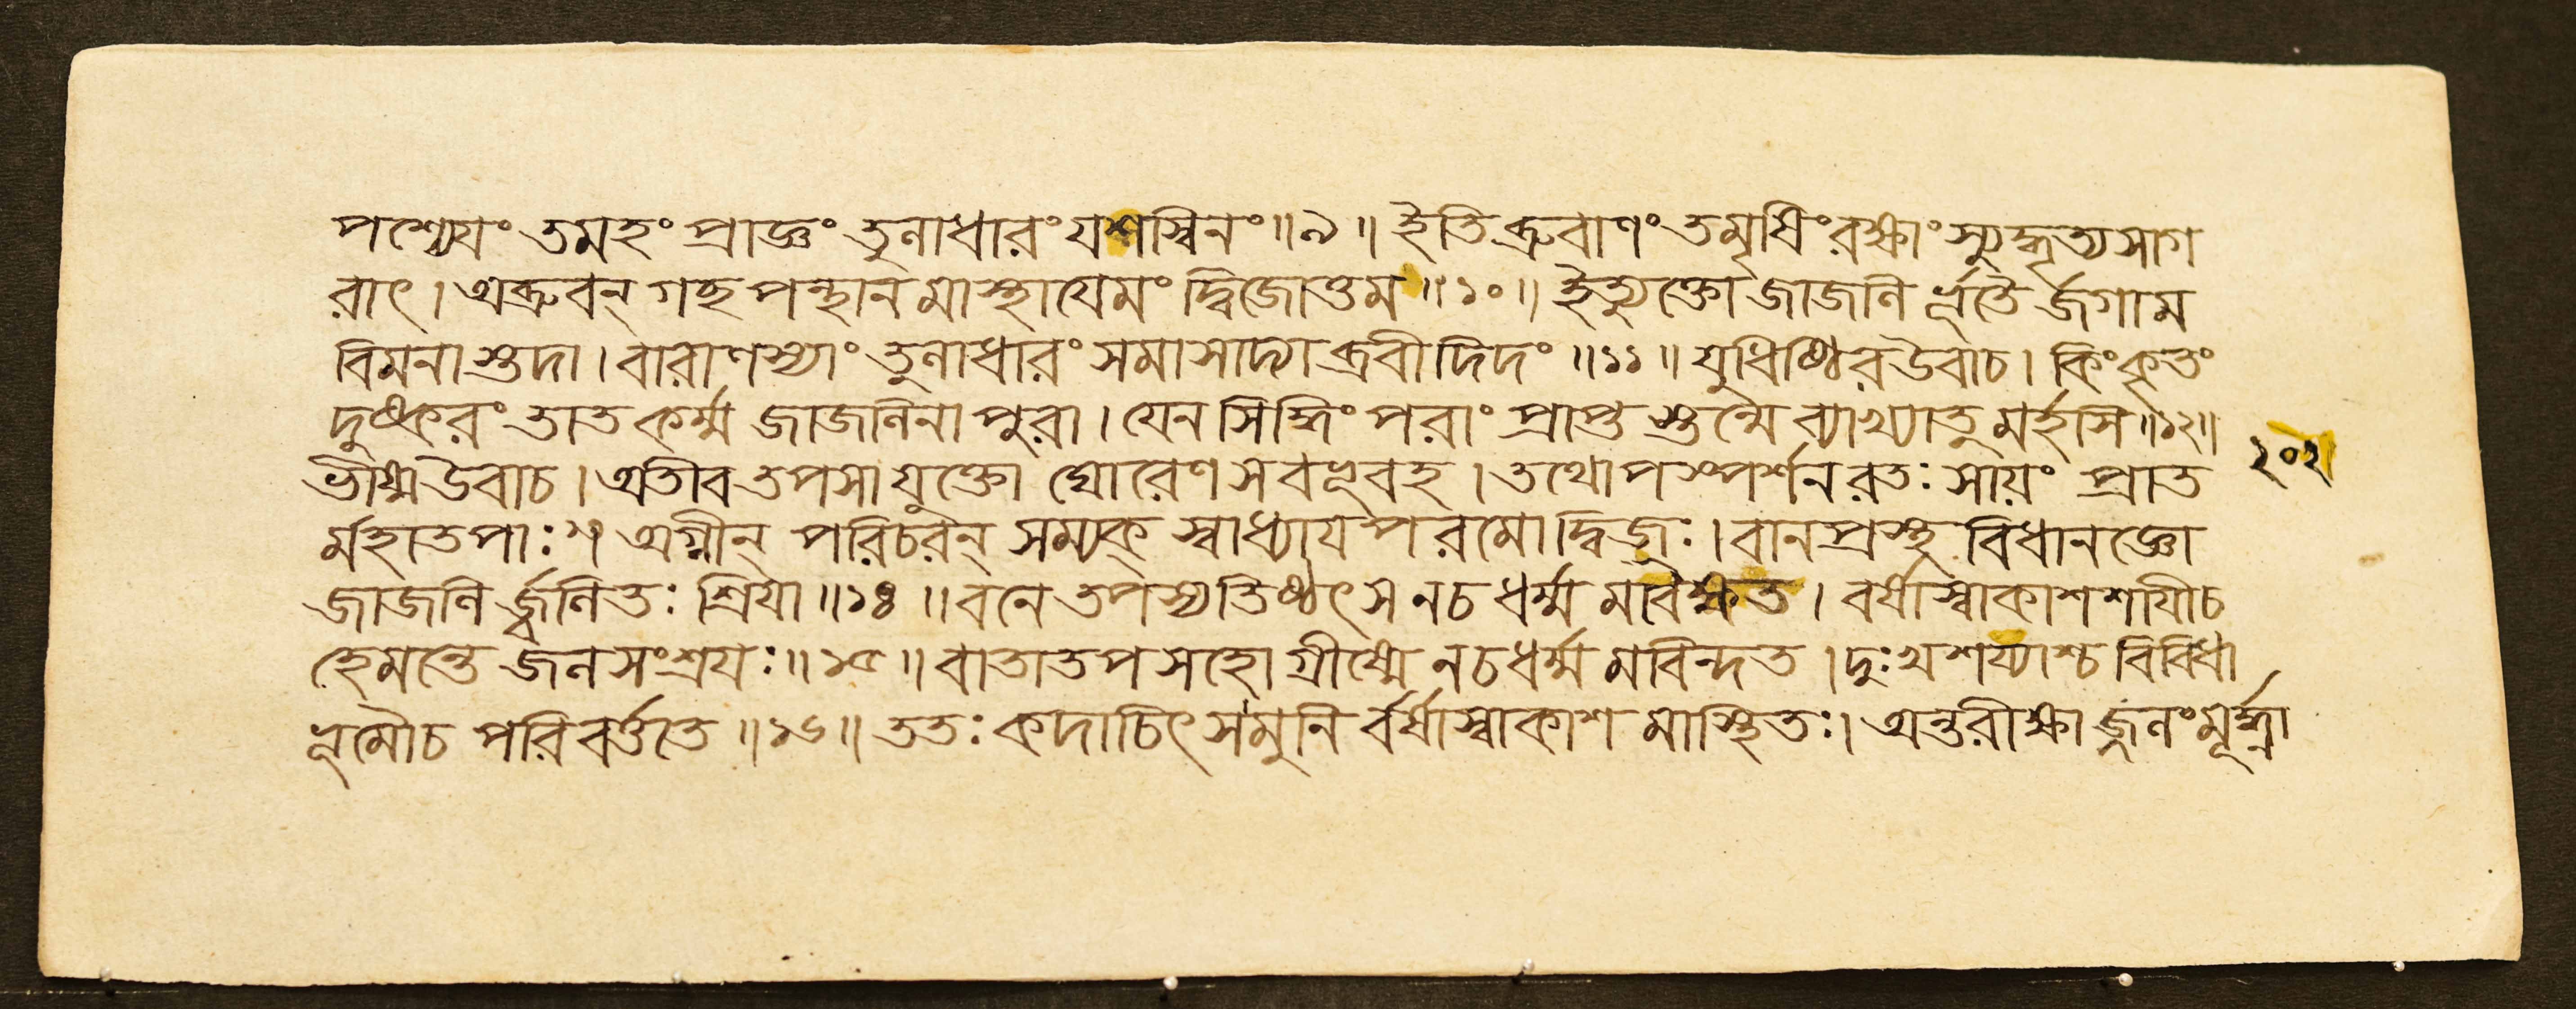 পশ্যেযং তমহং প্রাজ্ঞং তুলাধারং যশস্বিনং॥৯॥ ইতি ব্রুবাণং তমৃষিং রক্ষাং স্যুদ্ধৃত্য সাগ
রাৎ। অব্রুবন্ গচ্ছ পন্থানমাস্থাযেমং দ্বিজোত্তম॥১০॥ ইত্যুক্তো জাজলি র্ভূতৈ র্জগাম
বিমনাস্তদা। বারাণস্যাং তুলাধারং সমাসাদ্যাব্রবীদিদং॥১১॥ যুধিষ্ঠির উবাচ। কিং কৃতং
দুষ্করং তাত কর্ম্ম জাজলিনা পুরা। যেন সিদ্ধিং পরাং প্রাপ্তস্তন্মে ব্যাখ্যাতুমর্হসি॥১২॥
ভীষ্ম উবাচ। অতীব তপসা যুক্তো ঘোরেণ স বভূবহ। তথোপস্পর্শনরতঃ সায়ং প্রাত
র্মহাতপাঃ১৩ অগ্নীন্ পরিচরন্ সম্যক্ স্বাধ্যায পরমোদ্বিজঃ। বানপ্রস্থ বিধানজ্ঞো
জাজলি র্জ্বলিতঃ শ্রিযা॥১৪॥ বনে তপস্যতিষ্ঠৎ স নচ ধর্ম্মমবৈক্ষত। বর্ষাস্বাকাশশাযীচ
হেমন্তে জলসংশ্রযঃ॥১৫॥ বাতাতপসহো গ্রীষ্মে নচ ধর্ম্মমবিন্দত। দুঃখশয্যাশ্চ বিবিধা
ভূমৌচ পরিবর্ত্ততে॥১৬॥ ততঃ কদাচিৎ সমুনি র্বর্ষাস্বাকাশমাস্থিতঃ। অন্তরীক্ষাজ্জলং মূর্দ্ধ্না
২০২